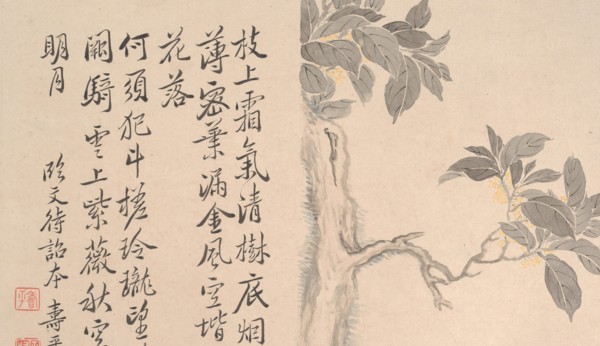 枝上霜氣清樹底烟
薄密葉漏金風空堦
花落
何須犯斗槎玲瓏望
闕騎雲上紫薇秋
明月
臨文待詔本 壽平